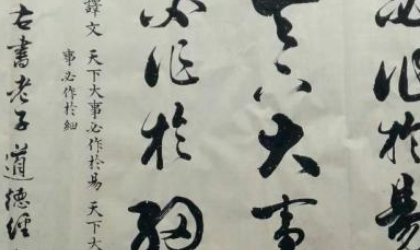 必作於易
天下大事
必作於細
譯文 天下大事必作於易 天下大
事必作於細
古書老子道德經